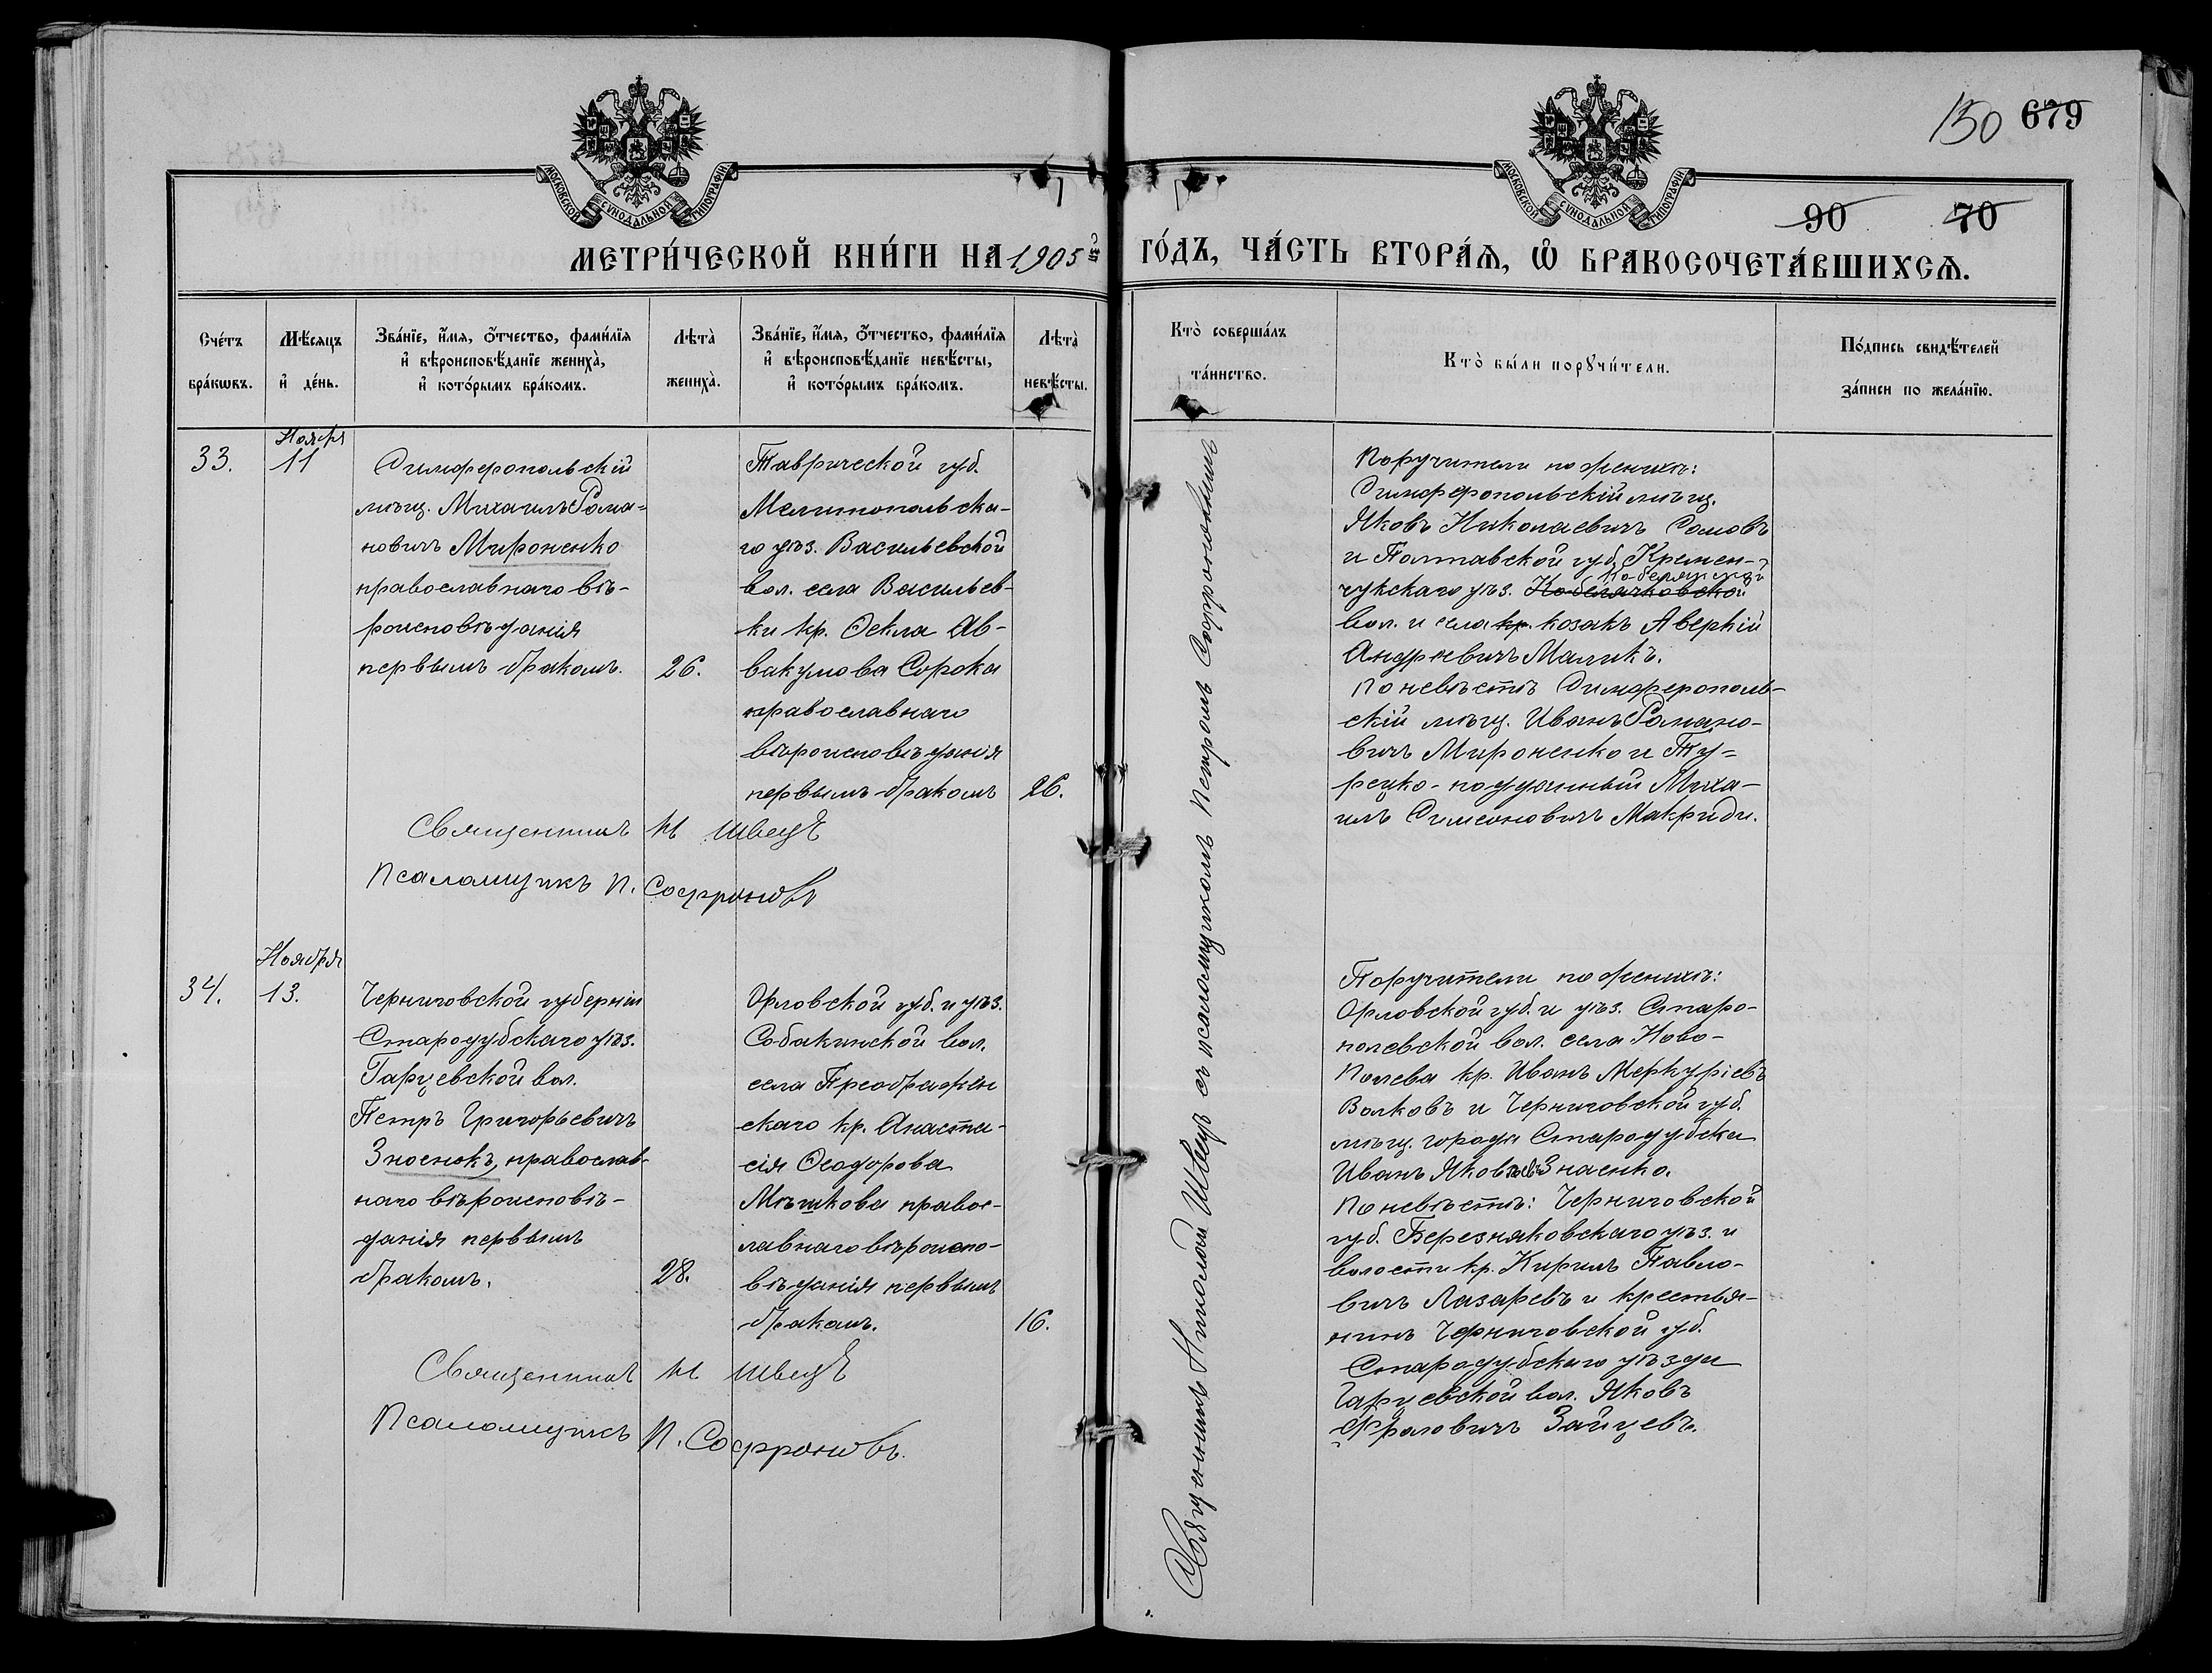 150 679
МОСКОВСКОЙ СѴНОДАЛЬНОЙ ТИПОГРАФІИ
МОСКОВСКОЙ СѴНОДАЛЬНОЙ ТИПОГРАФІИ
90 70
МЕТРИ́ЧЕСКОЙ КНИ́ГИ НА 1905й ГО́ДЪ, ЧА́СТЬ ВТОРА́Я, Ѡ҆ БРАКОСОЧЕТА́ВШИХСѦ.
Сче́тъ
бра́кѡвъ.
Мѣ́сяцъ
и҆ де́нь.
Зва́нїе, и҆́мя, ѻ҆́тчество, фами́лїя
и҆ вѣроисповѣ́данїе жениха̀,
и҆ кото́рымъ бра́комъ.
Лѣта̀
жениха̀.
Зва́нїе, и҆́мя, ѻ҆́тчество, фами́лїя
и҆ вѣроисповѣ́данїе невѣ́сты,
и҆ кото́рымъ бра́комъ.
Лѣта̀
невѣ́сты.
Кто̀ соверша́лъ
та́инство.
Кто̀ бы́ли порꙋчи́тели.
По́дпись свидѣ́телей
за́писи по жела́нїю.
33.
Ноября
11
Симферопольскій
мѣщ. Михаилъ Рома-
новичъ Мироненко
православнаго вѣ-
роисповѣданія
первымъ бракомъ.
26.
Таврической губ.
Мелитопольска-
го уѣз. Васильевской
вол. села Васильев-
ки кр. Ѳекла Ав-
вакумова Сорока
православнаго
вѣроисповѣданія
первымъ бракомъ
26.
Священникъ Н Швецъ
Псаломщикъ П. Софроновъ
Священникъ Николай Швецъ съ псаломщикомъ Петромъ Софроновымъ
Поручители по женихѣ:
Симферопольскій мѣщ.
Яковъ Николаевичъ Сомовъ
и Полтавской губ. Кремен-
чукскаго уѣз. Кобелячковской
вол. и села кр. козакъ Аверкій
Андреевичъ Маликъ.
По невѣстѣ Симферополь-
скій мѣщ. Иванъ Романо-
вичъ Мироненко и Ту-
рецко-подданный Миха-
илъ Симеоновичъ Макриди.
34.
Ноября
13.
Черниговской губерніи
Стародубскаго уѣз.
Гарцевской вол.
Петръ Григорьевичъ
Зноенокъ, православ-
наго вѣроисповѣ-
данія первымъ
бракомъ.
28.
Орловской губ. и уѣз.
Собакинской вол.
села Преображен
скаго кр. Анаста-
сія Ѳеодорова
Мѣшкова правос-
лавнаго вѣроиспо-
вѣданія первымъ
бракомъ.
16.
Священникъ Н Швецъ
Псаломщикъ П. Софроновъ.
Поручители по женихѣ:
Орловской губ. и уѣз. Старо-
полевской вол. села Ново-
Полева кр. Иванъ Меркуріевъ
Волковъ и Черниговской губ.
мѣщ. города Стародубска
Иванъ Яковлевъ Знаенко.
По невѣстѣ: Черниговской
губ. Березняковскаго уѣз. и
волости кр. Кирилъ Павло-
вичъ Лазаревъ и крестья-
нинъ Черниговской губ.
Стародубскаго уѣзда
Гарцевской вол. Яковъ
Фроловичъ Зайцевъ.